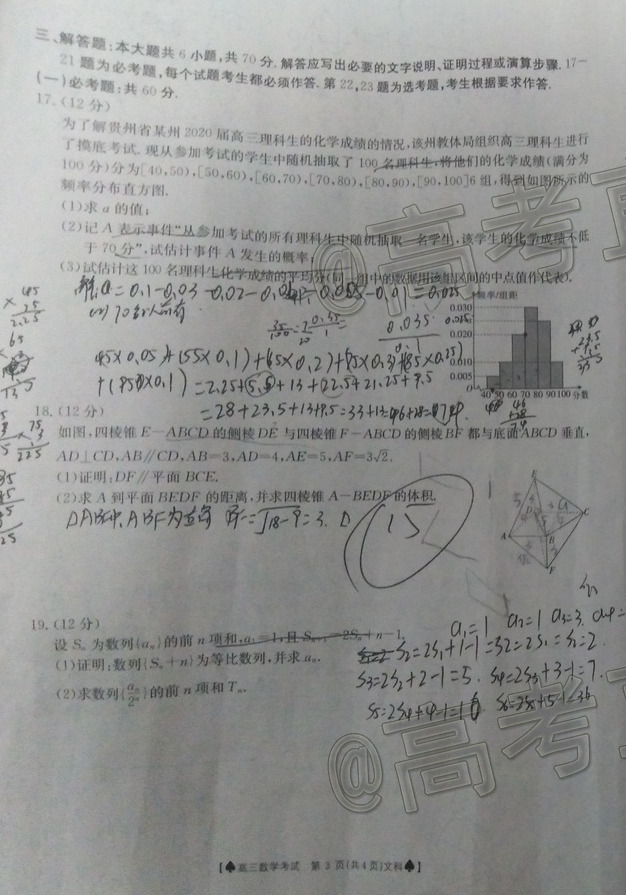 三、解答题:本大题共 6 小题,共 70 分. 解答应写出必要的文字说明、证明过程或演算步骤. 17—
21 题为必考题,每个试题考生都必须作答. 第 22,23 题为选考题,考生根据要求作答.
(一)必考题:共 60 分.
17. (12 分)
为了解贵州省某州 2020 届高三理科生的化学成绩的情况,该州教体局组织高三理科生进行
了摸底考试. 现从参加考试的学生中随机抽取了 100 名理科生,将他们的化学成绩(满分为
100 分)分为[40,50),[50,60),[60,70),[70,80),[80,90),[90,100]6 组,得到如图所示的
频率分布直方图.
(1)求 a 的值;
(2)记 A 表示事件“从参加考试的所有理科生中随机抽取一名学生,该学生的化学成绩不低
于 70 分”,试估计事件 A 发生的概率;
(3)试估计这 100 名理科生化学成绩的平均分(同一组中的数据用该组区间的中点值作代表).
频率/组距
0.030
0.020
a
0.010
0.005
40 50 60 70 80 90 100 分数
0.035
45×0.05+(55×0.1)+(65×0.2)+(75×0.3)+(85×0.25)
+(95×0.1)=2.25+5.5+13+22.5+21.25+9.5
18. (12 分)
如图,四棱锥 E—ABCD 的侧棱 DE 与四棱锥 F—ABCD 的侧棱 BF 都与底面 ABCD 垂直,
AD⊥CD,AB∥CD,AB=3,AD=4,AE=5,AF=3√2.
(1)证明:DF∥平面 BCE.
(2)求 A 到平面 BEDF 的距离,并求四棱锥 A—BEDF 的体积.
=√18-9=3.
15
E
D
C
A
B
F
19. (12 分)
设 Sₙ 为数列{aₙ}的前 n 项和,a₁=1,且 Sₙ₊₁=2Sₙ+n-1.
(1)证明:数列{Sₙ+n}为等比数列,并求 aₙ.
(2)求数列{aₙ/2ⁿ}的前 n 项和 Tₙ.
a₁=1 a₂=1 a₃=3
S₃=2S₂+2-1=5. S₄=2S₃+3-1=7.
@高考直
@高考直
【♠高三数学考试 第 3 页(共 4 页)文科♠】